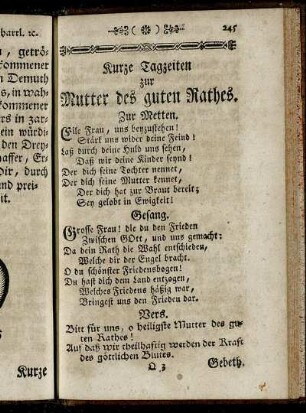 barrl. ꝛc.
, getrö-
kommener
Demuth
s, in wah-
kommener
rs in zar-
ein würdi-
den Drey-
affer, Er-
Dir, durch
nd prei-
it.
Kurze
( ) 245
Kurze Tagzeiten
zur
Mutter des guten Rathes.
Zur Metten.
Eile Frau, uns beyzustehen!
Stärk uns wider deine Feind!
Laß durch deine Huld uns sehen,
Daß wir deine Kinder seynd!
Der dich seine Tochter nennet,
Der dich seine Mutter kennet,
Der dich hat zur Braut bereit;
Sey gelobt in Ewigkeit!
Gesang.
Grosse Frau! die du den Frieden
Zwischen GOtt, und uns gemacht:
Da dein Rath die Wahl entschieden,
Welche dir der Engel bracht.
O du schönster Friedensbogen!
Du hast dich dem Land entzogen,
Welches Friedens häßig war,
Bringest uns den Frieden dar.
Vers.
Bitt für uns, o heiligste Mutter des gu-
ten Rathes!
Auf daß wir theilhaftig werden der Kraft
des göttlichen Blutes.
Q 3 Gebeth.